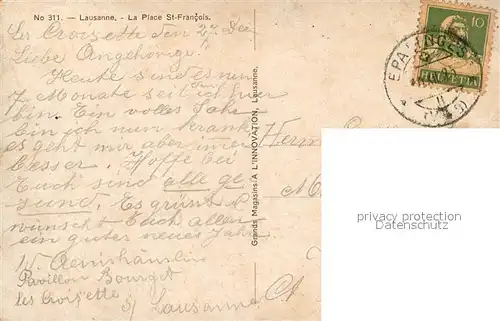 No 311. — Lausanne. - La Place St-François.
Les Croisettes den 2ten Dez
Liebe Angehörige!
Heute sind es nun
7 Monate seit ich hier
bin. Ein volles Jahr
bin ich nun krank
es geht mir aber immer
besser. Hoffe bei
Euch sind alle ge
sund. Es grüsst &
wünscht Euch allen
ein gutes neues Jahr
Pavillon Bourget
les Croisettes
s/ Lausanne.
Grands Magasins A L'INNOVATION, Lausanne.
10
HELVETIA
EPALINGES
Herrn
privacy protection
Datenschutz